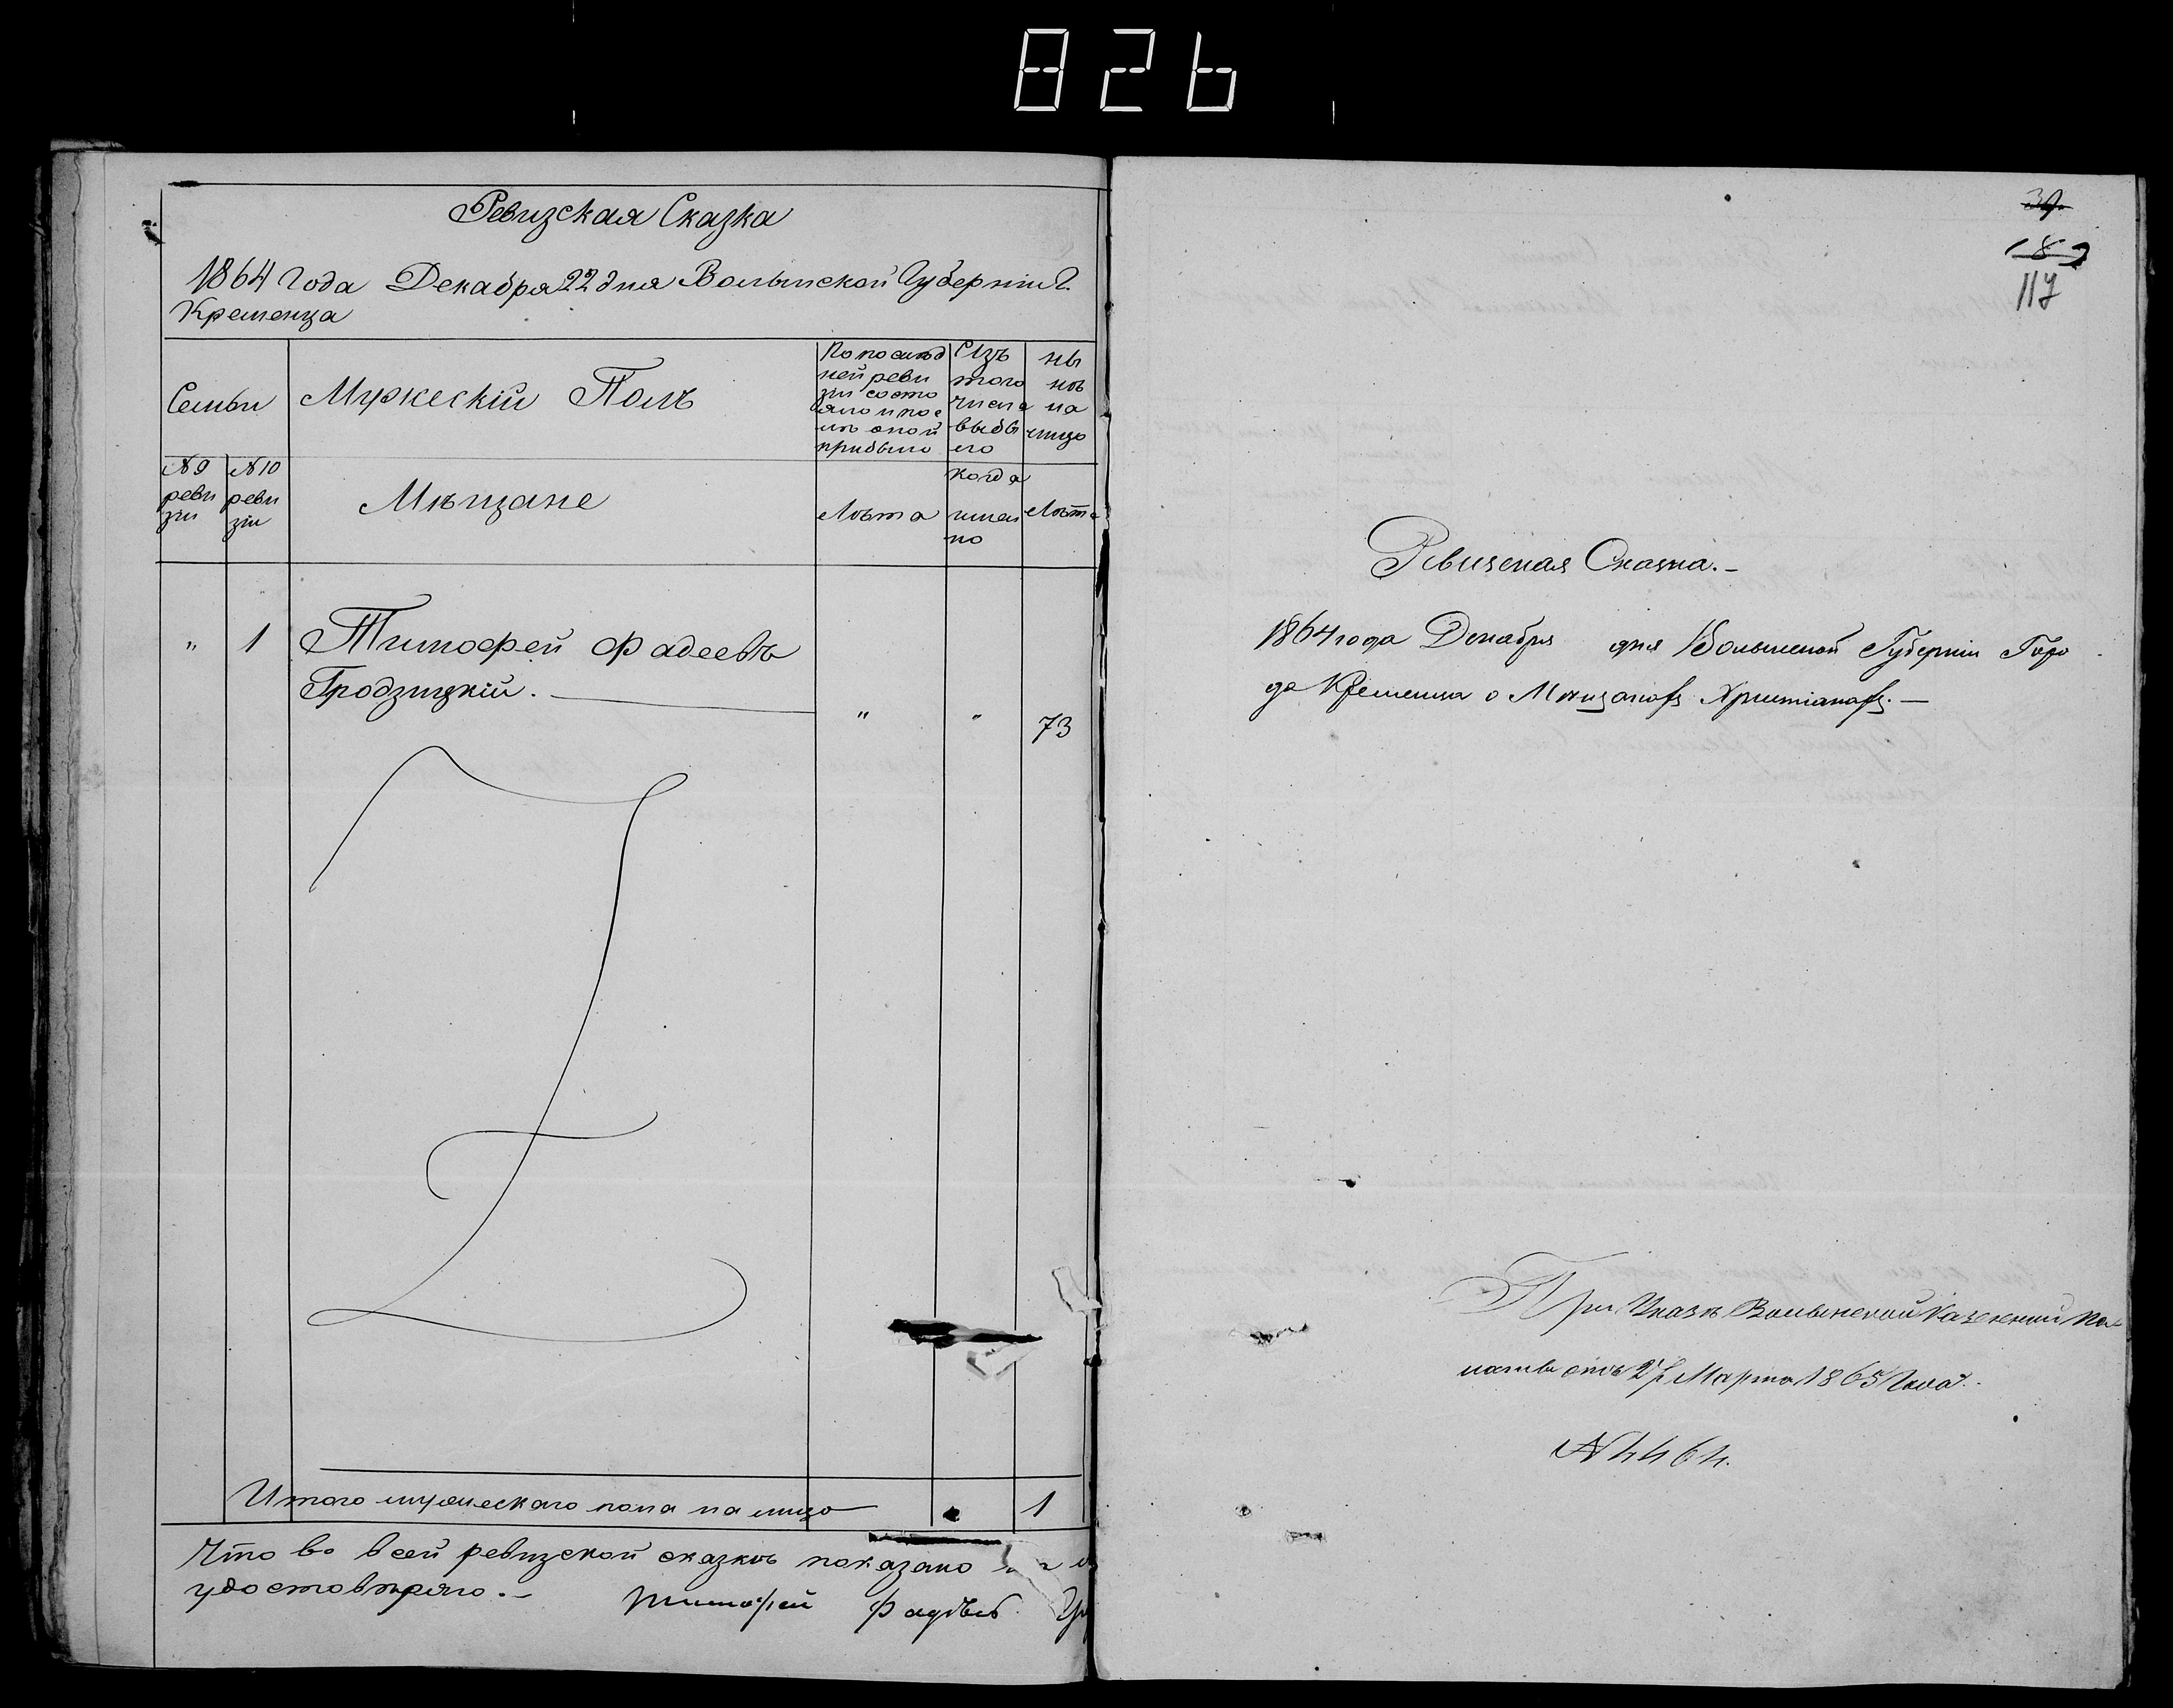 826
Ревизская Сказка
1864 года Декабря 22 дня Волынской Губерніи Г.
Кременца
Семьи
Мужескій Полъ
По послѣд
ней реви
зіи состо
яло и пос
лѣ оной
прибыло
Изъ
того
числа
выбы
ло
ны
нѣ
на
лицо
№ 9
реви
зіи
№ 10
реви
зіи
Мѣщане
Лѣта
когда
имен
но
Лѣта
" 1 Тимофей Фадеевъ
Гродзицкій. " " 73
Итого мужескаго пола на лицо 1
Что во всей ревизской сказкѣ показано
удостовѣряю.— Тимофей Фадѣевъ
39
189
117
Ревизская Сказка.—
1864 года Декабря дня Волынской Губерніи Горо
да Кременца о Мѣщанахъ Христіанахъ.—
При Указѣ Волынской Казенной Па
латы отъ Марта 1865 Года.
№ 4464.